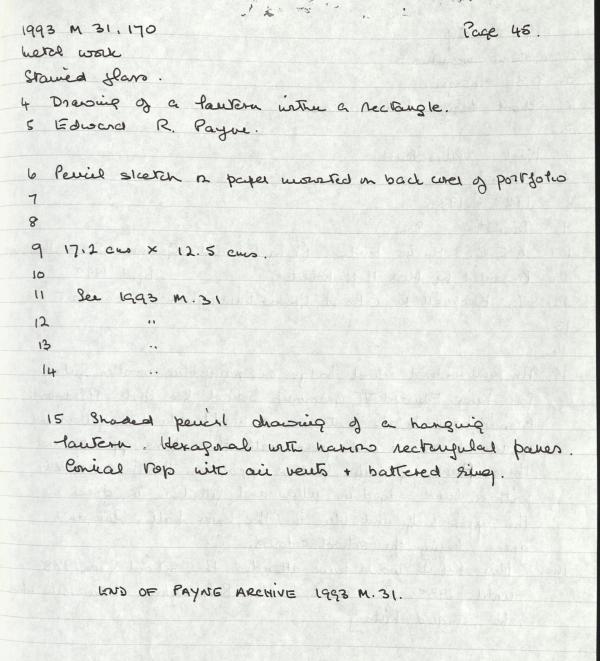 1993 M 31.170 Page 45.
Metal work
Stained glass.
4 Drawing of a lantern within a rectangle.
5 Edward R. Payne.
6 Pencil sketch on paper mounted on back cover of portfolio
7
8
9 17.2 cms × 12.5 cms.
10
11 See 1993 M.31
12 "
13 "
14 "
15 Shaded pencil drawing of a hanging
lantern. Hexagonal with narrow rectangular panes.
Conical top with air vents + battered ring.
END OF PAYNE ARCHIVE 1993 M.31.